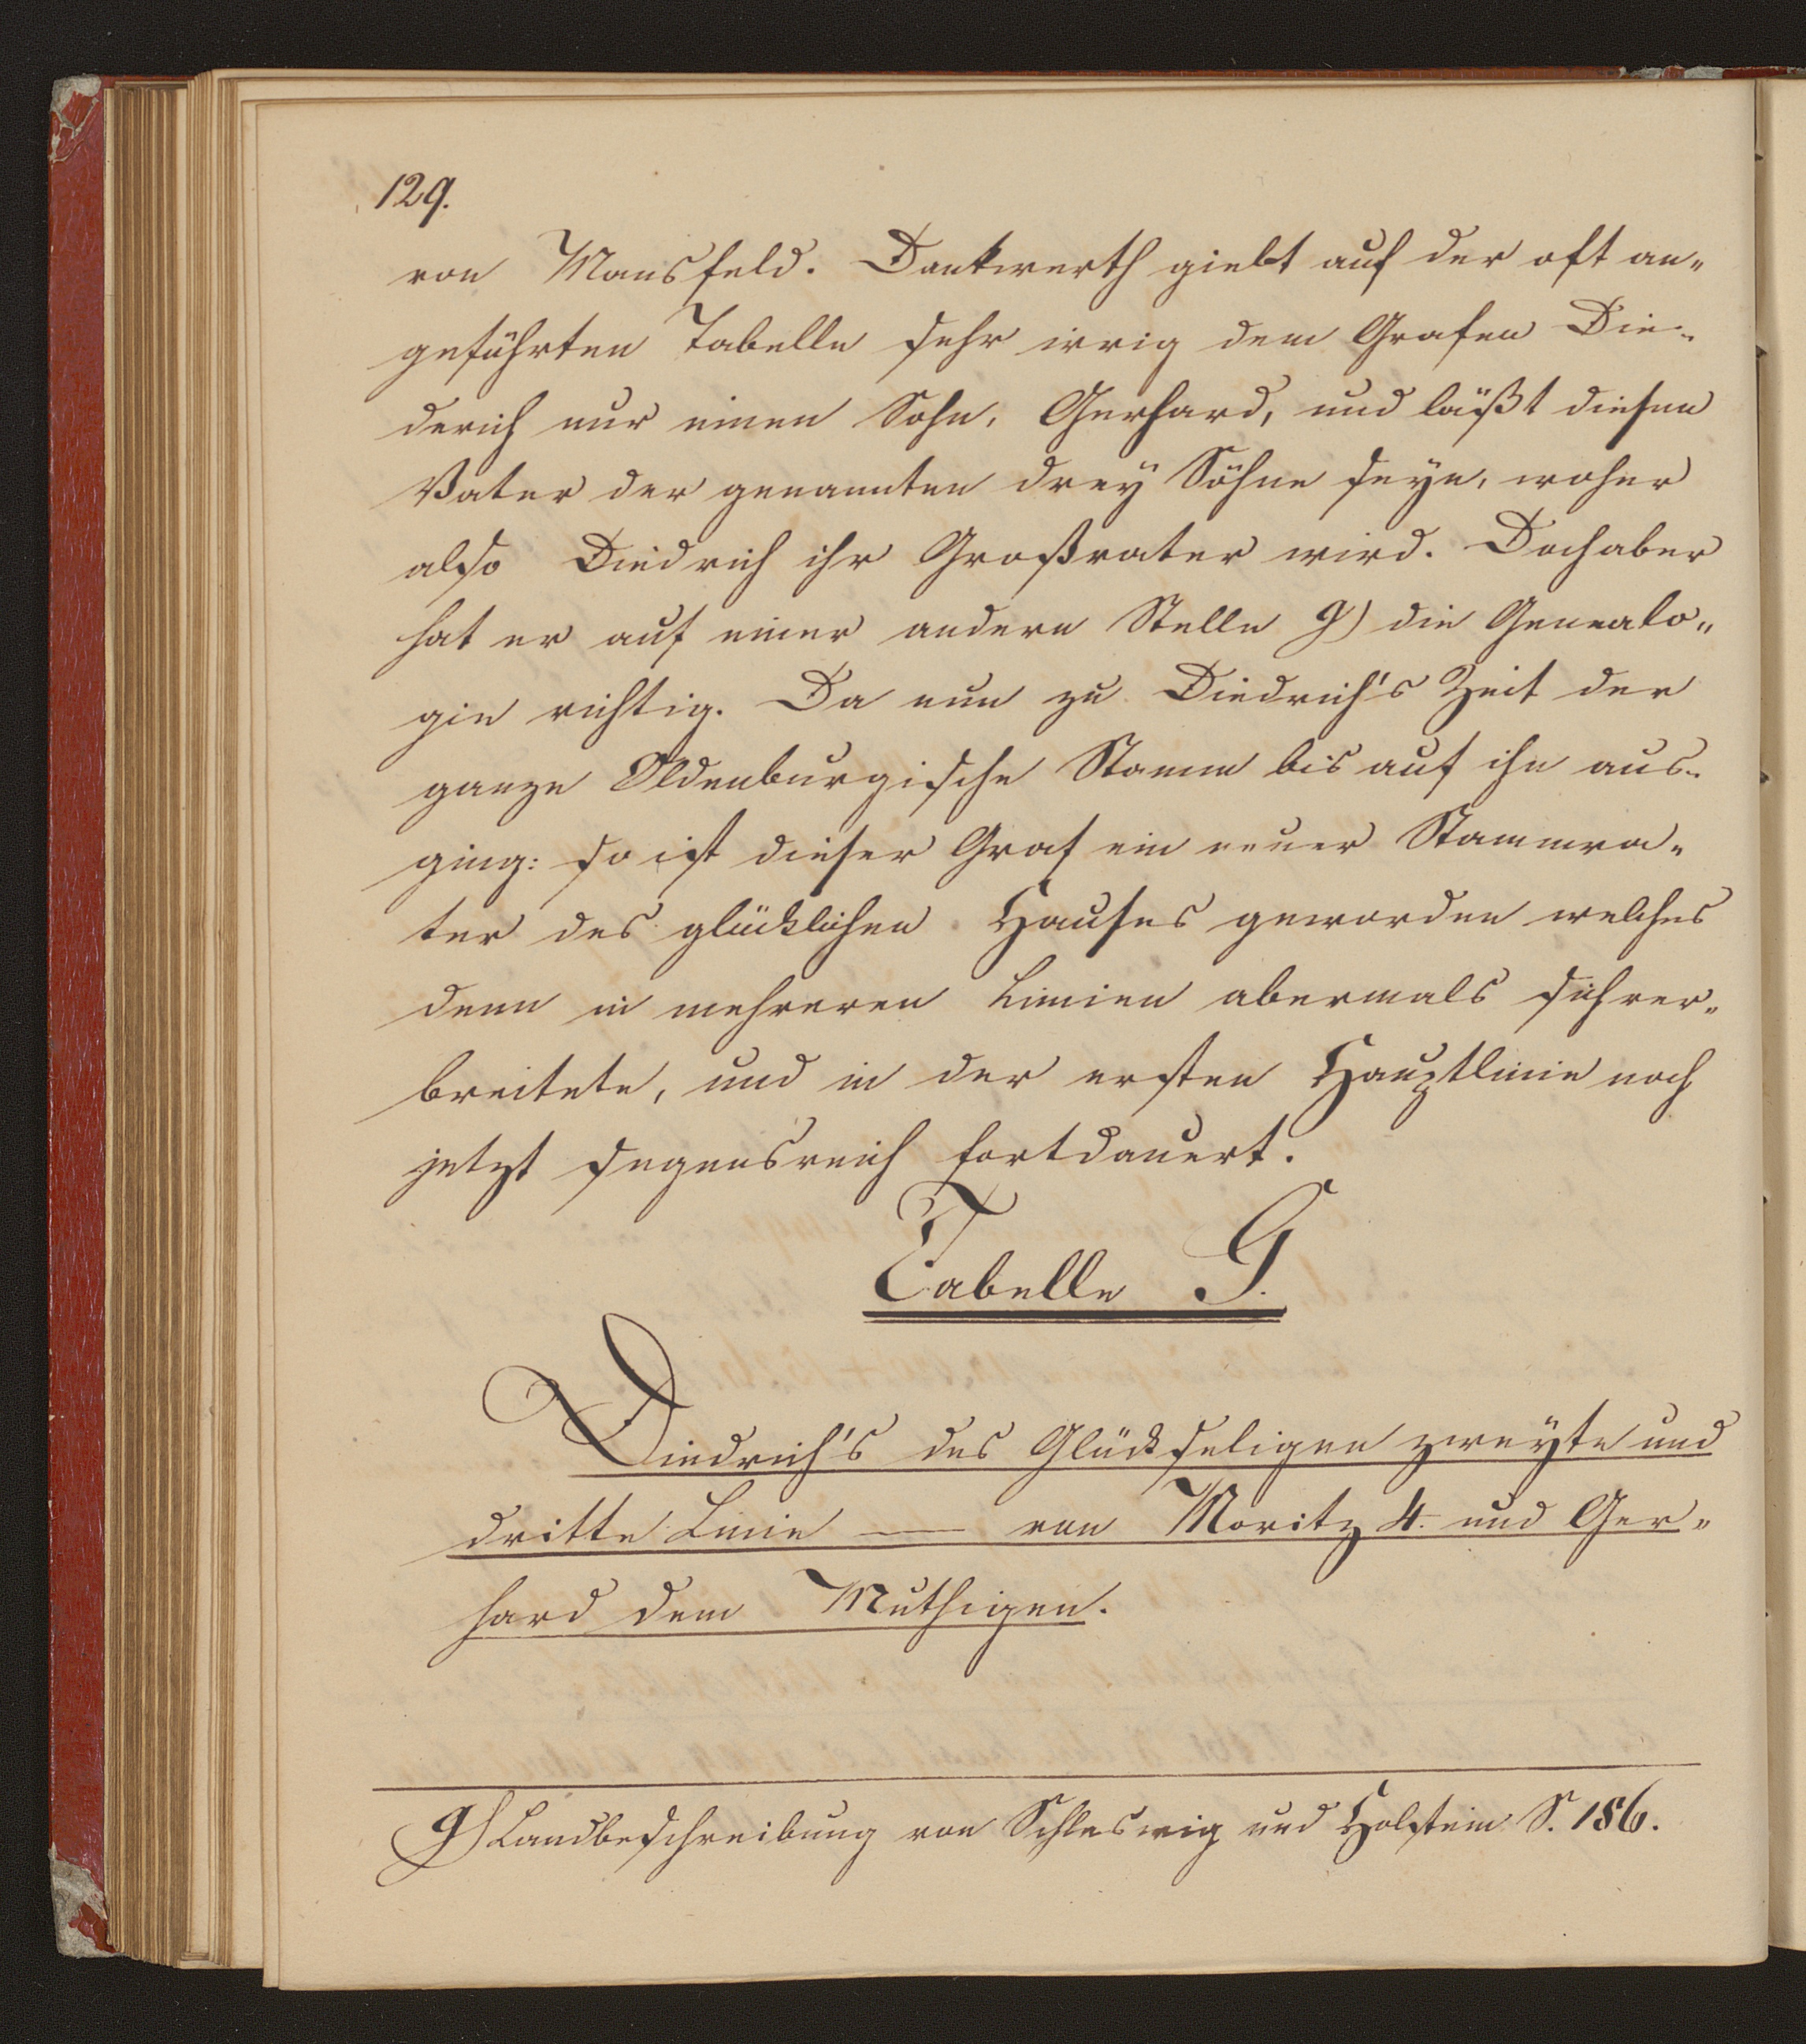 129.
von Mansfeld. Dankwerth giebt auf der oft an-
geführten Tabelle sehr irrig dem Grafen Die-
derich nur einen Sohn, Gerhard, und läßt diesen
Vater der genannten drey Söhne seyn, woher
also Diedrich ihr Großvater wird. Doch aber
hat er auf einer andern Stelle g) die Genealo-
gie richtig. Da nun zu Diedrich's Zeit der
ganze Oldenburgische Stamm bis auf ihn aus-
ging: so ist dieser Graf ein neuer Stammva-
ter des glücklichen Hauses geworden welches
denn in mehreren Linien abermals sich ver-
breitete, und in der ersten Hauptlinie noch
jetzt segensreich fortdauert.
Tabelle G.
Diedrich's des Glückseligen zweyte und
dritte Linie — von Moritz 4. und Ger-
hard dem Muthigen.
g) Landbeschreibung von Schleswig und Holstein S. 186.